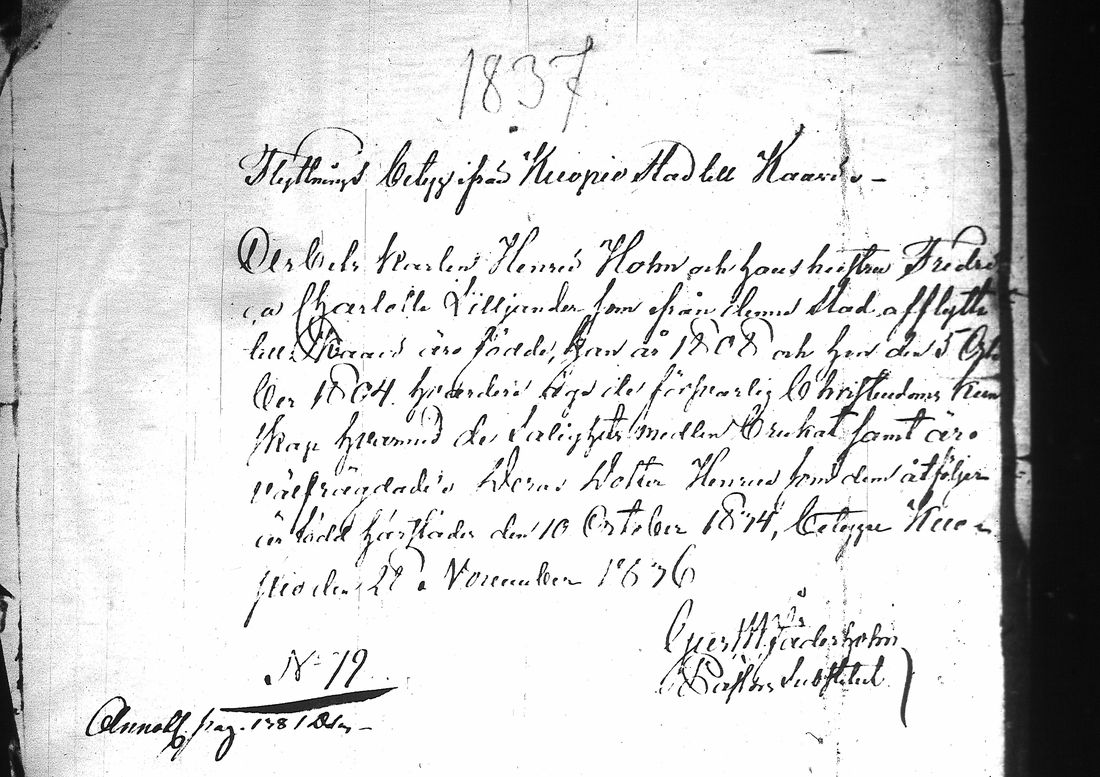 1837
Flyttnings Betyg ifrån Kuopio stad till Kaavi
Arbets karlen Henric Holm och hans hustru Fredri
ca Charlotta Lilljander som från denna stad afflytta
till Kaavi äro födde, han år 1808 och hon den 5 Octo
ber 1804. hvardera äga de försvarlig Christendoms kun
skap hvarmed de Salighets medlen brukat samt äro
välfrägdade. Deras Dotter Henrica som dem åtföljer
är född härstädes den 10 October 1834, betygar Kuo
pio den 22 November 1836
Pastors Substitut
No 79
Annotf. pag. 1381